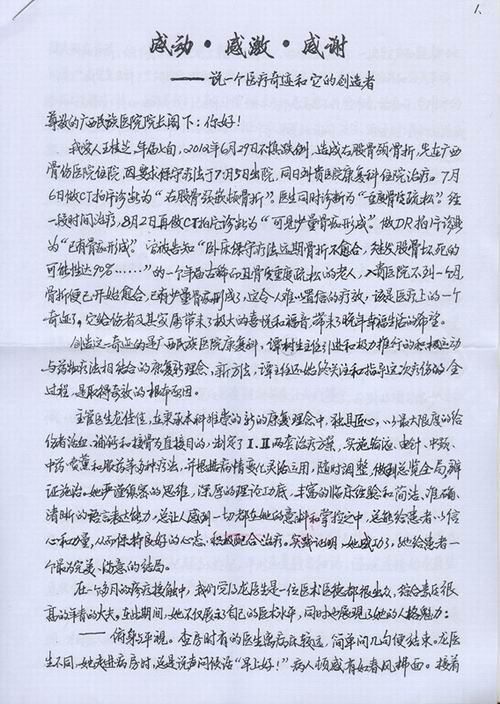 1.
感动·感激·感谢
——说一个医疗奇迹和它的创造者
尊敬的广西民族医院院长阁下：你好！
我家人王桂芝，年届七旬，2012年6月29日不慎跌倒，造成右股骨颈骨折，先在广西
骨伤医院住院，因要求保守疗法于7月5日出院，同日到贵医院康复科住院治疗。7月
6日做CT拍片诊断为“右股骨颈嵌插骨折”。医生同时诊断为“重度骨质疏松”。经
一段时间治疗，8月2日再做CT拍片诊断为“可见少量骨痂形成”。做DR拍片诊断
为“已有骨痂形成”。曾被告知“卧床保守疗法远期骨折不愈合，继发股骨头坏死的
可能性达90%……”的一个年届古稀而且骨质重度疏松的老人，入贵医院不到一个月，
骨折便已开始愈合，已有少量骨痂形成，这令人难以置信的疗效，该是医疗上的一个
奇迹了。它给伤者及其家属带来了极大的喜悦和福音，带来了晚年幸福生活的希望。
创造这一奇迹的是广西民族医院康复科，谭树生主任引进和极力推行的积极运动
与药物疗法相结合的康复新理念、新方法，谭主任还始终关注和指导这次疗伤的全
过程，是取得奇效的根本原因。
主管医生龙佳佳，在秉承本科推崇的新的康复理念中，独具匠心，以最大限度的给
伤者活血、补钙和接骨为直接目的，制定了Ⅰ、Ⅱ两套治疗方案，实施输液、电针、中频、
中药熏蒸和服药等多种疗法，并根据病情变化灵活应用，随时调整，做到总览全局，辨
证施治。她严谨缜密的思维，深厚的理论功底，丰富的临床经验和简洁、准确、
清晰的语言表达能力，总让人感到一切都在她的意料和掌控之中，这能给患者以信
心和力量，从而保持良好的心态，积极配合治疗。实践证明，她成功了，她给患者一
个最完美、满意的结局。
在一个多月的诊疗接触中，我们觉得龙医生是一位医术医德都很出众，综合素质很
高的年青的大夫。在此期间，她不仅展示自己的医术水平，同时也展现了她的人格魅力：
——俯身与平视。查房时有的医生离病床较远，简单问几句便结束。龙医
生不同，她走进病房时，总是说声问候语“早上好！”病人顿感有如春风拂面。接着